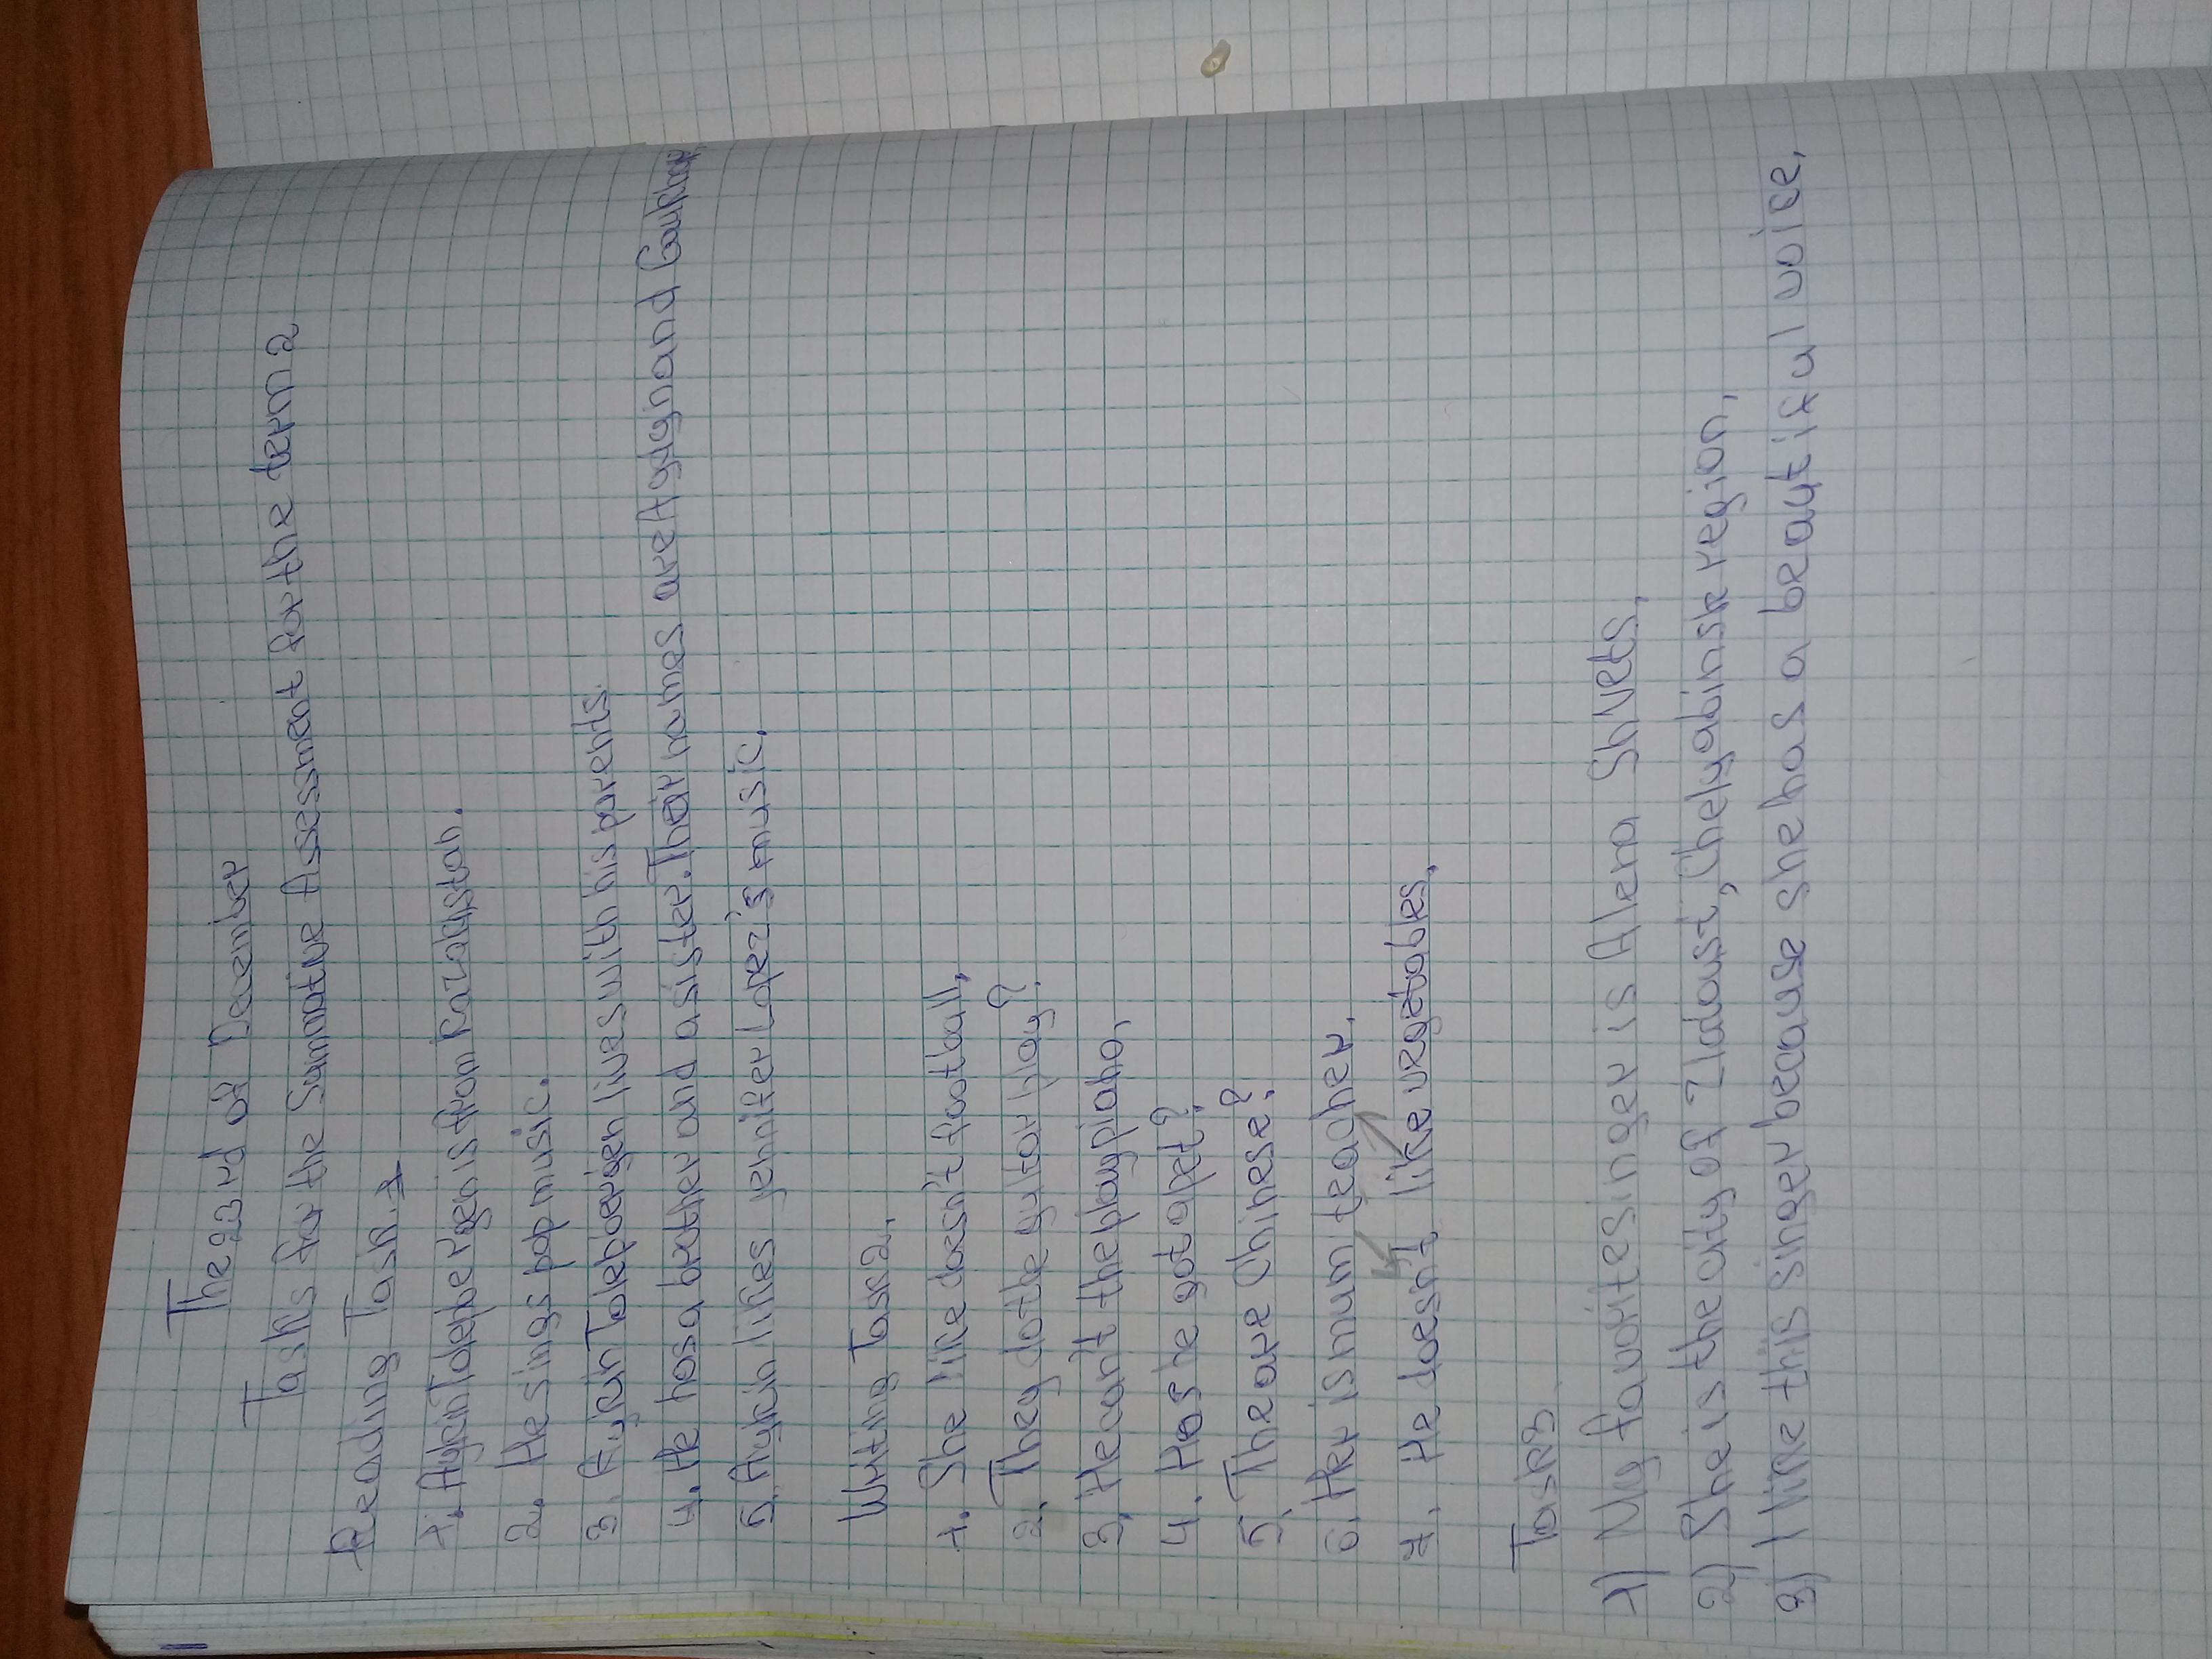 The 23rd of December
Tasks for the Summative Assessment for the term 2
Reading Task 1
1. Aykyn Tolepbergen is from Kazakhstan.
2. He sings pop music.
3. Aykyn Tolepbergen lives with his parents.
4. He has a brother and a sister. Their names are Aydyn and
5. Aykyn likes Jennifer Lopez's music.
Writing Task 2.
1. She like doesn't football.
2. They do the guitar play?
3. He can't the play piano.
4. Has he got a pet?
5. The are Chinese?
6. Her is mum teacher.
7. He doesn't like vegetables.
Task 3
1) My favorite singer is Alena Shvets.
2) She is the city of Zlatoust, Chelyabinsk region.
3) I like this singer because she has a beautiful voice.